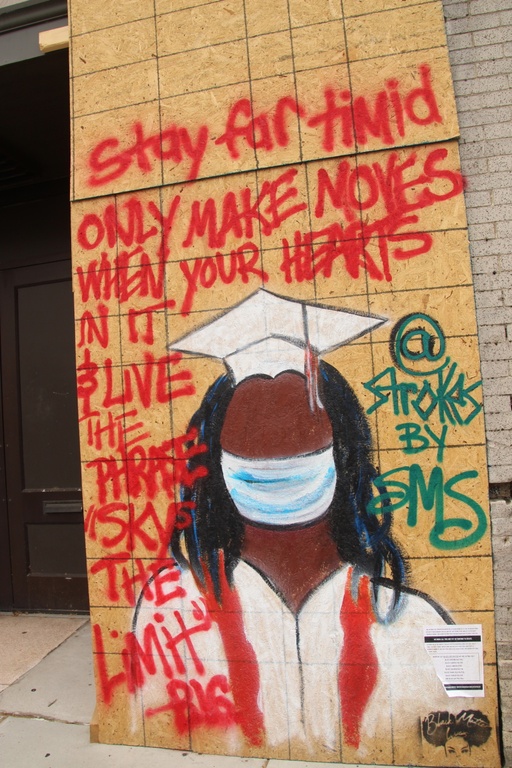 Stay far timid
ONLY MAKE MOVES
WHEN YOUR HEARTS
IN IT
& LIVE
THE
PHRASE
"SKYS
THE
LiMiT"
- BIG
@
STROKES
BY
SMS